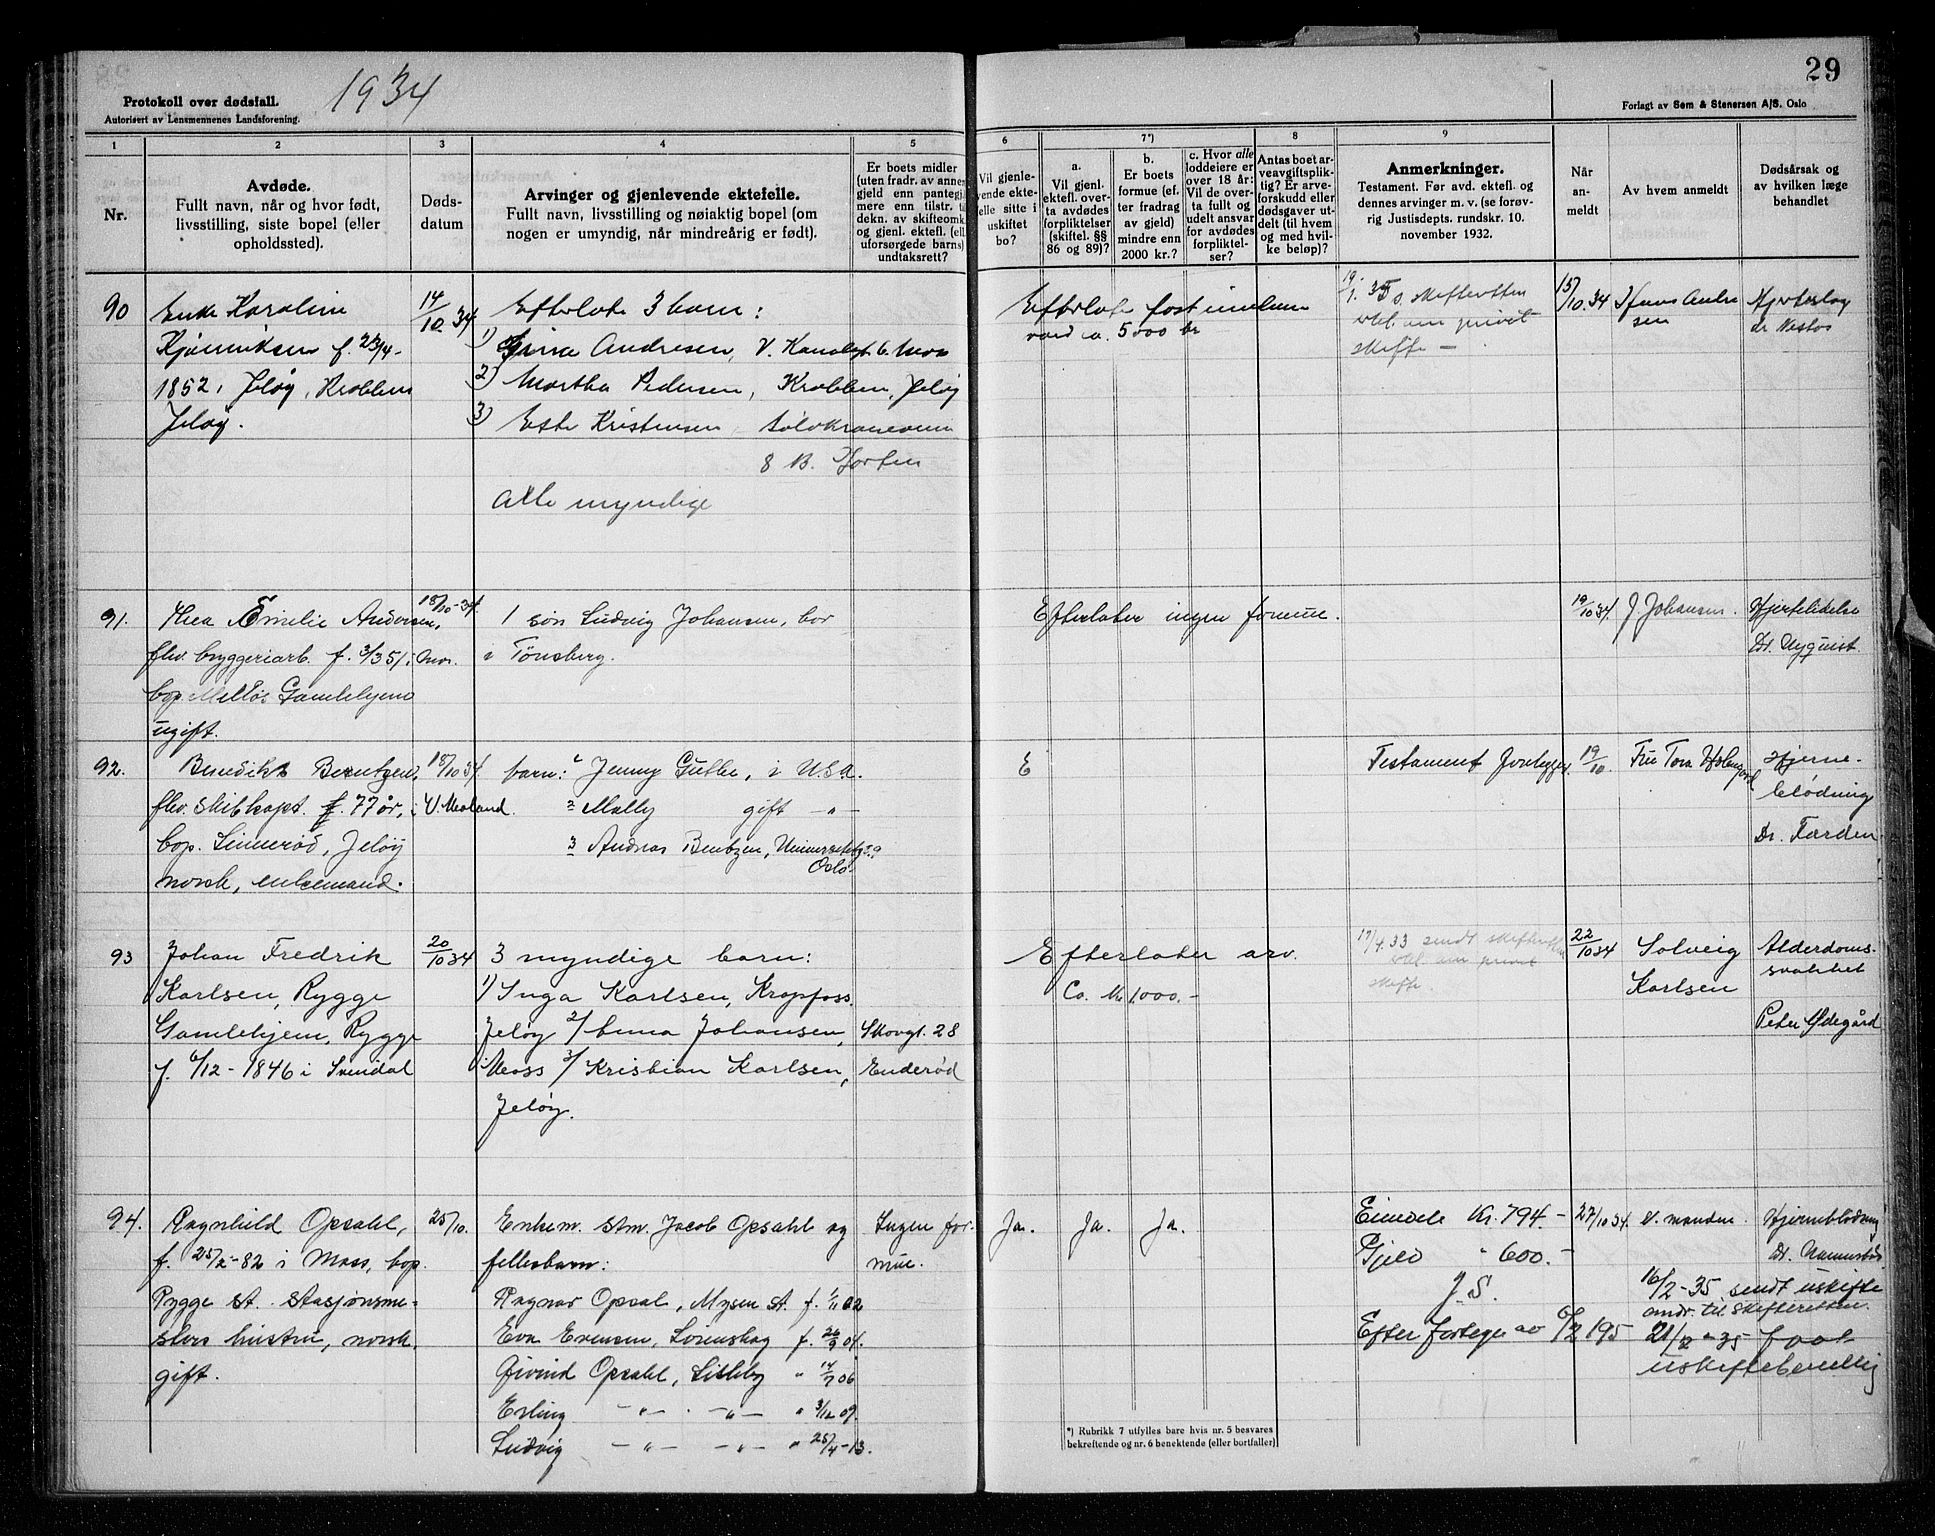 1934
29
Protokoll over dødsfall.
Autorisert av Lensmennenes Landsforening.
Forlagt av Sem & Stenersen A/S. Oslo
1 2 3 4 5 6 7*) 8 9
Nr.
Avdøde.
Fullt navn, når og hvor født,
livsstilling, siste bopel (eller
opholdssted).
Døds-
datum
Arvinger og gjenlevende ektefelle.
Fullt navn, livsstilling og nøiaktig bopel (om
nogen er umyndig, når mindreårig er født).
Er boets midler
(uten fradr. av annen
gjeld enn pantegj.
mere enn tilstr. t.
dekn. av skifteomk.
og gjenl. ektef. (el.
uforsørgede barns)
undtaksrett?
Vil gjenle-
vende ekte-
felle sitte i
uskiftet
bo?
a.
Vil gjenl.
ektefl. over-
ta avdødes
forpliktelser
(skiftel. §§
86 og 89)?
b.
Er boets
formue (ef-
ter fradrag
av gjeld)
mindre enn
2000 kr.?
c. Hvor alle
loddeiere er
over 18 år:
Vil de over-
ta fullt og
udelt ansvar
for avdødes
forpliktel-
ser?
Antas boet ar-
veavgiftsplik-
tig? Er arve-
forskudd eller
dødsgaver ut-
delt (til hvem
og med hvil-
ke beløp)?
Anmerkninger.
Testament. Før avd. ektefl. og
dennes arvinger m. v. (se forøv-
rig Justisdepts. rundskr. 10.
november 1932.
Når
an-
meldt
Av hvem anmeldt
Dødsårsak og
av hvilken læge
behandlet
90
Enke Karoline
f. 23/4-
1852, Jeløy, Krobben
Jeløy.
14/10 34
Efterlot 3 barn:
1) Andresen, V. Kanalgt 6. Moss
2) Martha Pedersen, Krobben, Jeløy
3) Kristensen
8 B. Horten
Alle myndige
Efterlot fast eiendom
verd ca. 5000 kr
19/1. 35 s. skifteretten
om privat
skifte —
15/10. 34
Andre
sen
91.
Thea Emilie Andersen,
fhv. bryggeriarb. f. 3/3 51 i
bop. Melløs Gamlehjem
ugift.
18/10-34.
Mos.
1 søn Ludvig Johansen, bor
i Tønsberg.
Efterlater ingen formue.
19/10 34.
J. Johansen.
Hjertelidelse
Dr. Nyquist.
92.
Benedikt Berntzen,
fhv. skibskapt. f. 77 år, i
bop. Linnerød, Jeløy
norsk, enkemand.
18/10 34.
V. Moland.
barn: 1 Jenny Guthe, i USA.
2 Mally gift -"-
3 Andreas Berntzen,
Oslo.
E
Testament forligger.
19/10
Fru Tora
Hjerne-
blødning
Dr. Farden
93
Johan Fredrik
Karlsen, Rygge
Gamlehjem, Rygge
f. 6/12-1846 i Svindal
20/10 34
3 myndige barn:
1) Inga Karlsen, Kropfoss.
Jeløy 2/ Anna Johansen, Skovgt. 28
Moss 3/ Kristian Karlsen, Enderød
Jeløy.
Efterlater arv.
Ca. kr 1000.-
17/4. 33 sendt skifteretten
om privat
skifte.
22/10 34
Solveig
Karlsen
Alderdoms-
svakhet
Peter Ødegård
94.
Ragnhild Opsahl,
f. 25/2-82 i Moss, bop.
Rygge st. stasjonsme-
sters hustru, norsk.
gift.
25/10.
Enkem. stm. Jacob Opsahl og
fellesbarn:
Ragnar Opsal, Mysen st. f. 1/11 02
Eva Evensen, Lørenskog f. 26/9 04.
Øivind Opsahl, Lisleby " 14/7 06
Erling -"- . -"- " 3/12 09.
Ludvig -"- -"- " 25/4-13.
Ingen for-
mue.
Ja. Ja. Ja.
Eiendele Kr. 794.-
Gjeld " 600.-
J. S.
Efter fortegn av 6/2 1935
27/10 34.
V. manden.
Hjerneblødning
Dr.
16/2-35 sendt uskifte
andr. til Skifteretten.
21/12-35 faat
uskiftebevillig
*) Rubrikk 7 utfylles bare hvis nr. 5 besvares
bekreftende og nr. 6 benektende (eller bortfaller)